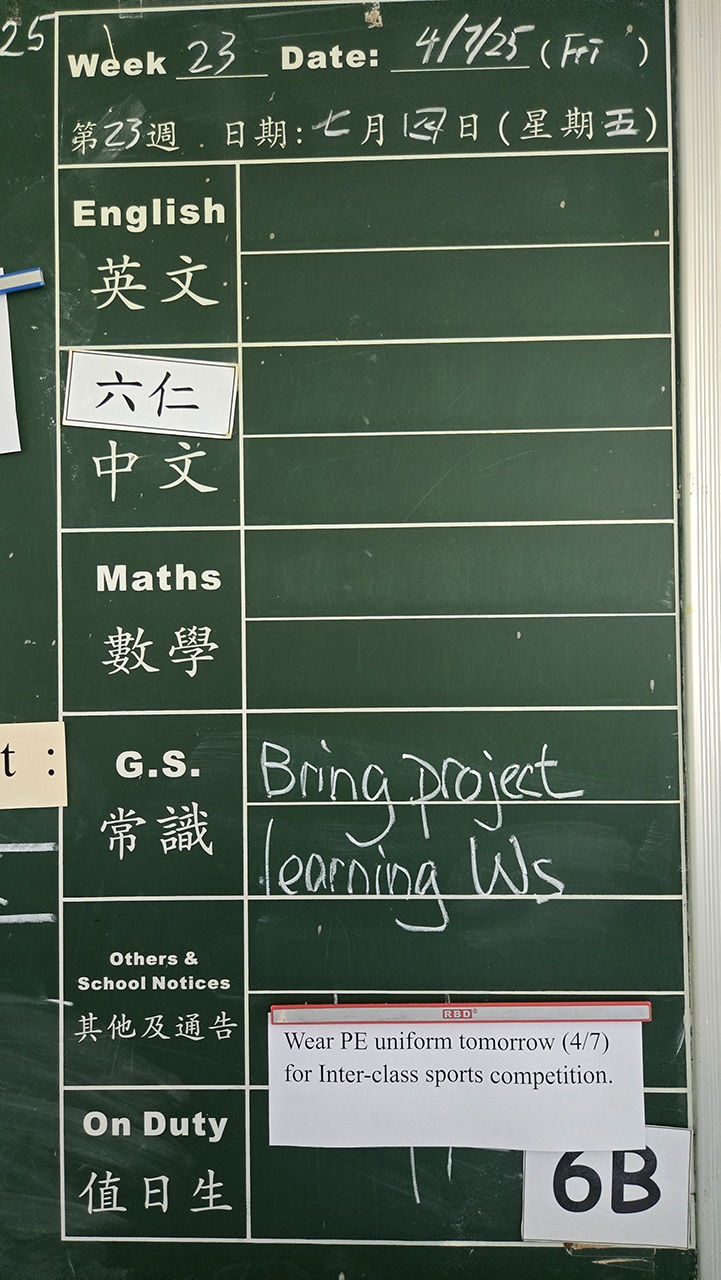 25
Week 23 Date: 4/7/25 (Fri)
第23週 日期:七月四日(星期五)
English
英文
六仁
中文
Maths
數學
t :
G.S.
常識
Bring project
learning Ws
Others &
School Notices
其他及通告
RBD
Wear PE uniform tomorrow (4/7)
for Inter-class sports competition.
On Duty
值日生
6B